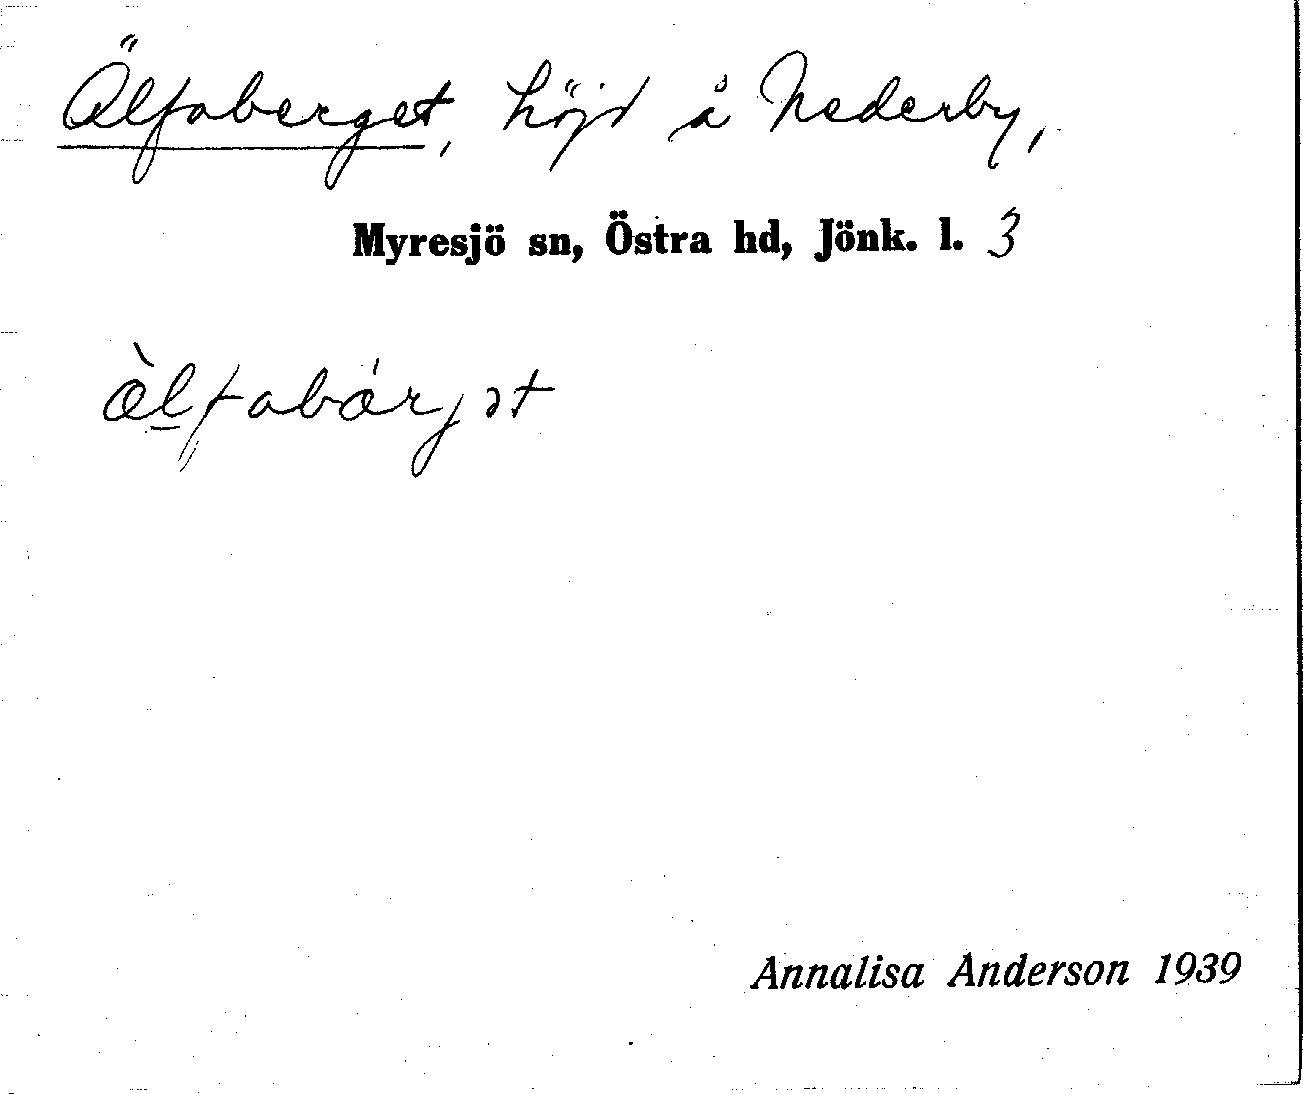 Älfaberget, höjd å Nederby,
Myresjö sn, Östra hd, Jönk. l. 3
Annalisa Anderson 1939